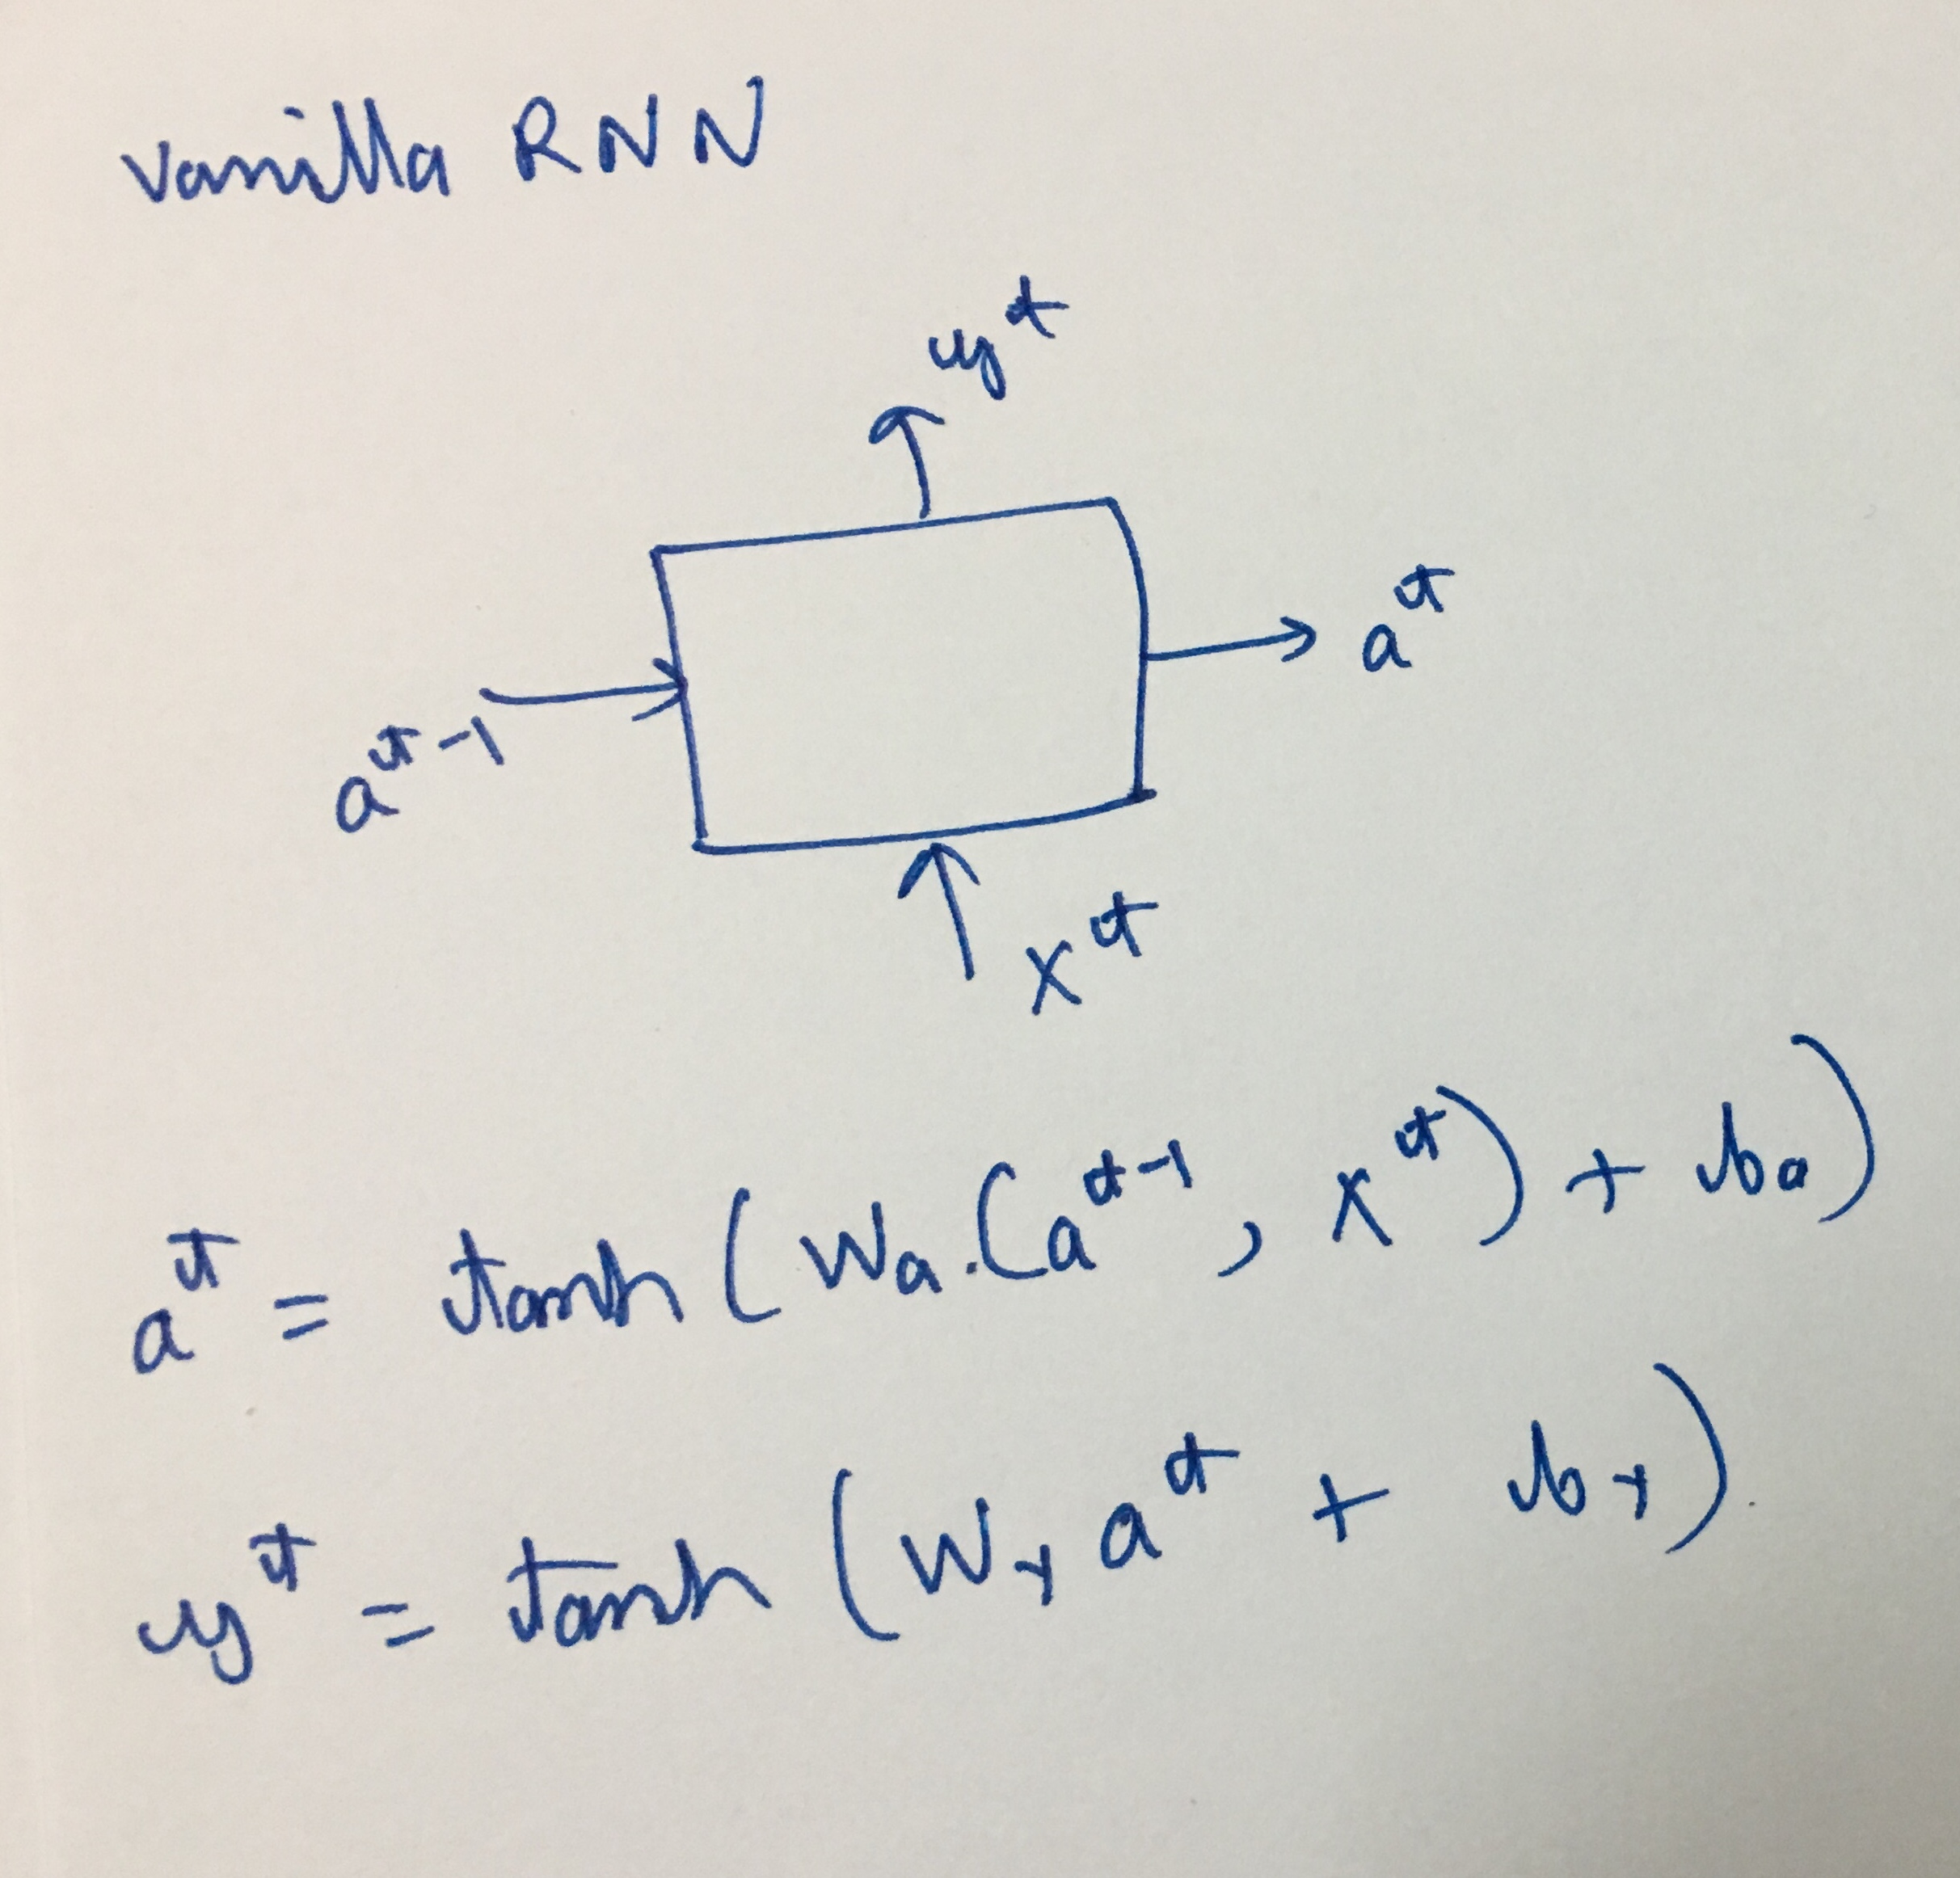 Vanilla RNN
y^t
a^t
a^t-1
x^t
a^t = tanh (Wa.(a^t-1, x^t) + ba)
y^t = tanh (Wy a^t + by)